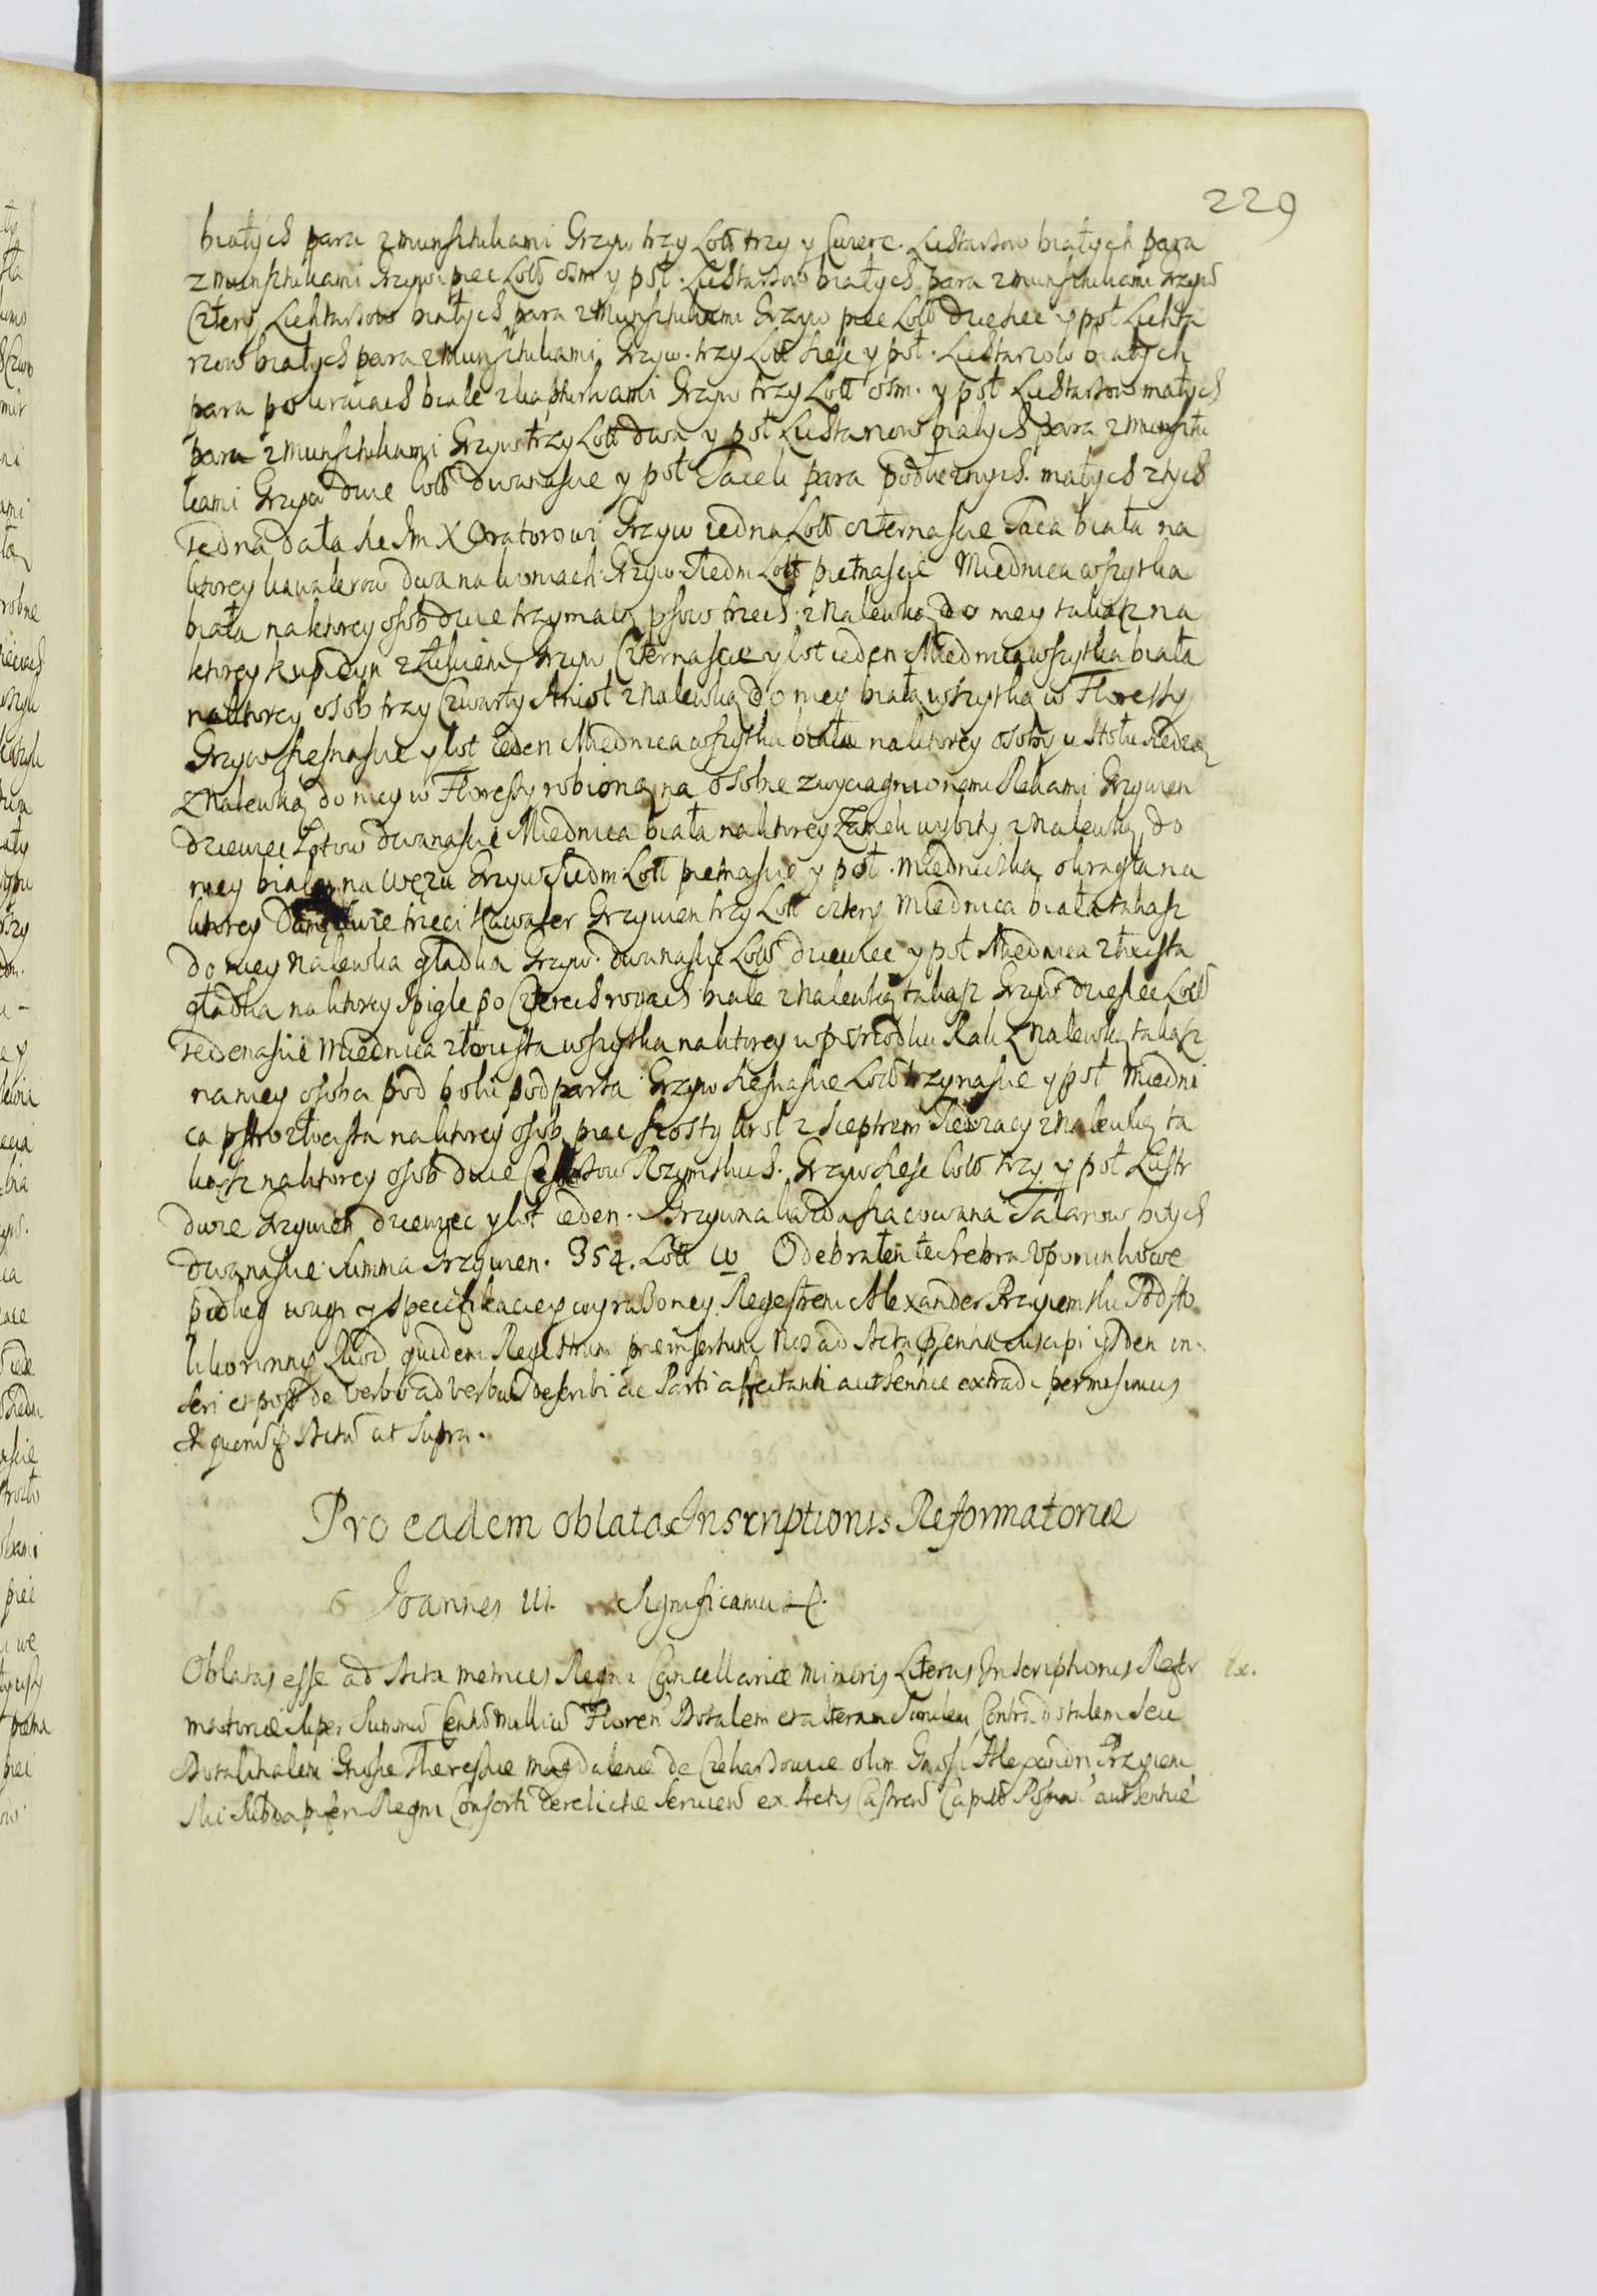 229
białych para z munsztukami Grzyw trzy Lott trzy y Cwierc. Lichtarzow białych para
z munsztukami Grzywi piec Lott osm y poł. Lichtarzow białych para z munsztukami Grzyw
Cztery Lichtarzow białych para z Munsztukami Grzyw piec Lott dziesiec y poł Lichta
rzow białych para z Munsztukami Grzyw. trzy Lott szesc y poł. Lichtarzow białych
para po kraiach biale z kapturkami Grzyw trzy Lott osm. y poł Lichtarzow małych
para z Munsztukami Grzyw trzy Lott dwa y poł Lichtarzow białych para z Munsztu
kami Grzyw dwie lott dwanascie y poł Tacek para podłuznych małych z tych
Jedna dała sie Jm X Oratorowi Grzyw iedna Lott czternascie Taca biała na
ktorey kawalerow dwa na koniach. Grzyw. Siedm Lott pietnascie Miednica wszytka
biała na ktorey osob dwie trzymaią psow trzech z Nalewką do niey takasz na
ktorey kupidyn z Łukiem Grzyw Czternascie y lot ieden Miednica wszytka biała
na ktorey osob trzy Czwarty Anioł z Nalewką do niey białą wszytką w Floressy
Grzyw szesnascie y lot ieden Miednica wszytka biała na ktorey osoby u stołu siedzą
z Nalewką do niey w Floressy robioną na osobie z wyciagnionemi Rekami Grzywien
dziewiec Lotow dwanascie Miednica biała na ktorey Zamek wybity z Nalewką do
niey białą na wężu Grzyw Siedm Lott pietnascie y poł. Miedniczka okragła na
ktorey Damy dwie trzeci Kawaler Grzywien trzy Lott cztery Miednica biała takasz
do niey Nalewka gładka Grzyw. dwanascie Lott dziewiec y poł Miednica złocista
gładka na ktorey Spigle po Czterech rogach biale z Nalewką takasz Grzyw dziesiec Lott
Jedenascie Miednica złocista wszytka na ktorey w posrzodku Rak z Nalewką takasz
na niey osoba pod boki podparta Grzyw szesnascie Lott trzynascie y poł Miedni
ca pstrozłocista na ktorey osob piec szosty krol z Sceptrem Siedzący z Nalewką ta
kasz na ktorey osob dwie Cesarzow Rzymskich. Grzyw szesc lott trzy y poł Lustr
dwie Grzywien dziewiec y lot ieden. Grzywna kazda szacowana Talarow bitych
dwanascie Summa Grzywien. 354. Lott Odebrałem te Srebra Upominkowe
podług wagi y specifikacyey wyrazoney Regestrem Alexander Przyiemski Podsto
li koronny Quod quidem Regestrum preinsertum Nos ad Acta psentia suscipi ijsdem in
seri et post de verbo ad verbum describi ac Parti affectanti authentice extradi permisimus
Actum ut Supra.
Pro eadem oblata Inscriptionis Reformatoriæ
Joannes III. Significamus &c.
Oblatas esse ad Acta metrices Regni Cancellariæ minoris Literas Inscriptionis Refor
matoriæ super Summam Floren Dotalem et alteram Similem Contradotalem seu
Magdalenæ de olim Alexandri Przyiem
ski Regni Consorti derelictæ ex Actis authentice